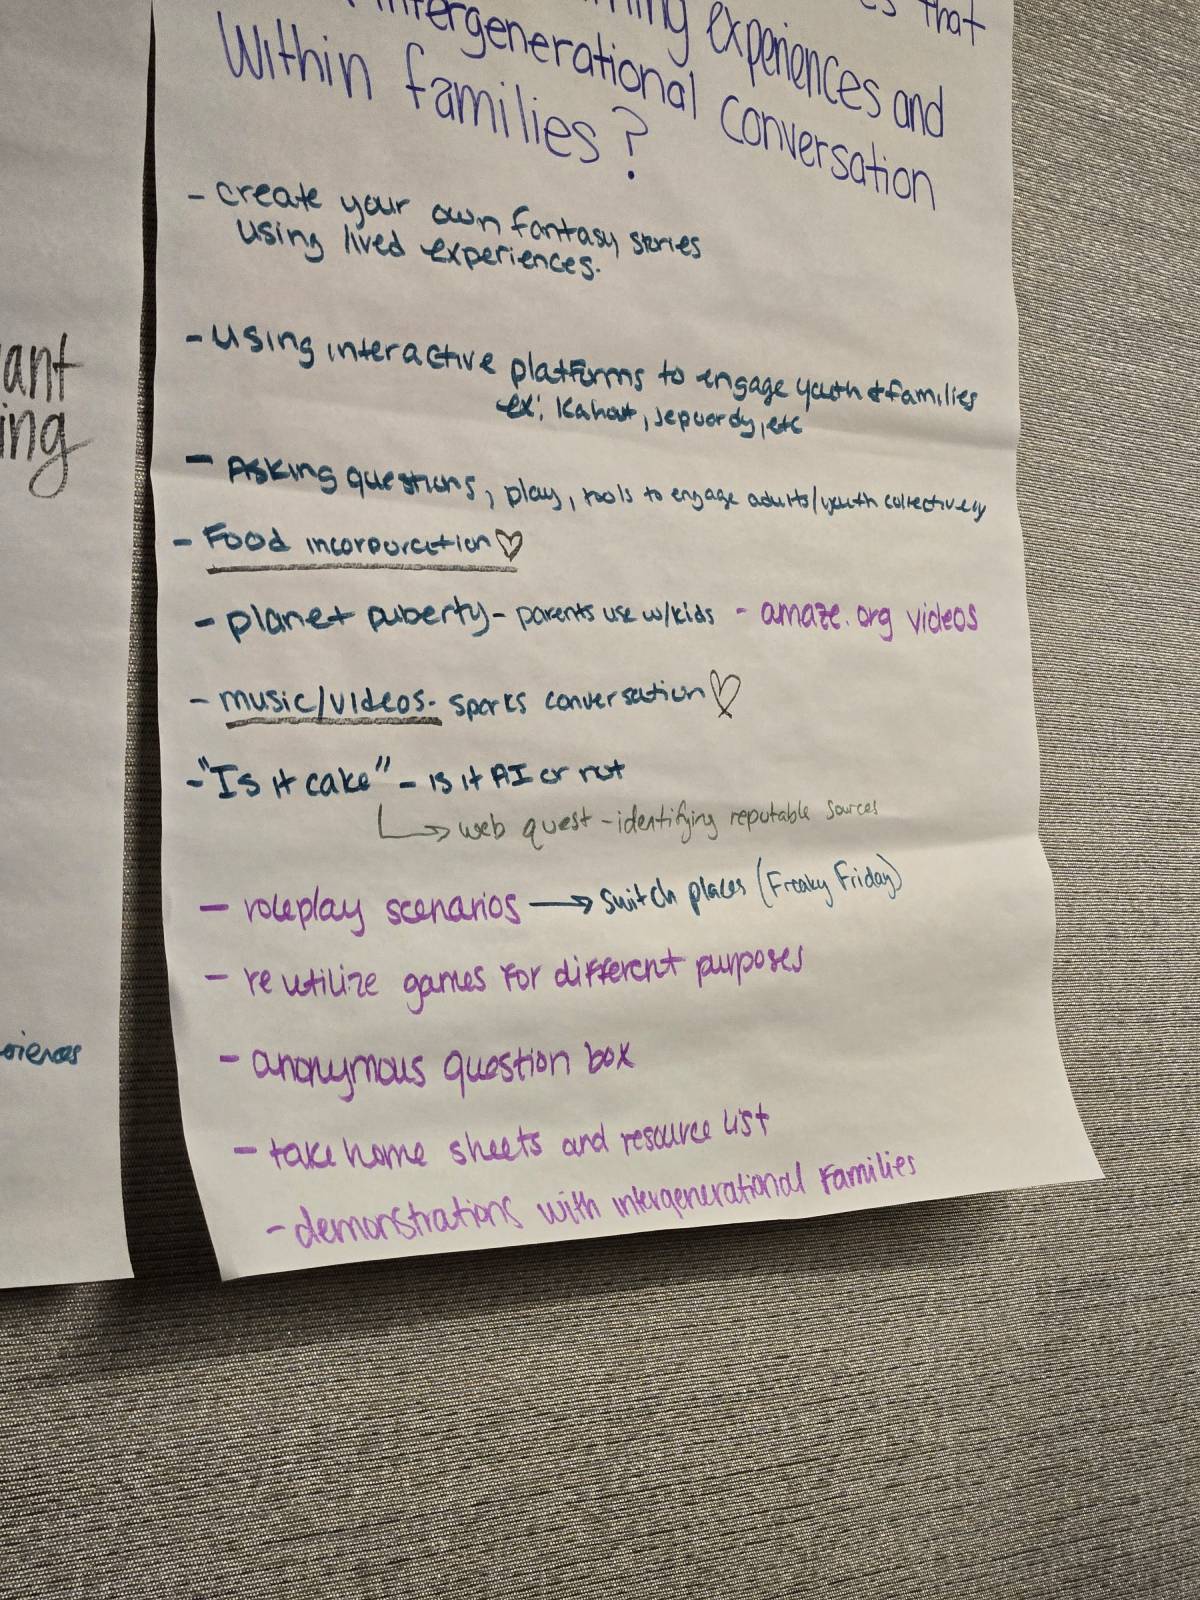 that
experiences and
intergenerational conversation
Within families?
- create your own fantasy stories
using lived experiences.
- Using interactive platforms to engage youth & families
ex: Kahoot, Jepuordy, etc
- Asking questions, play, tools to engage adults/youth collectively
- Food incorporation ♡
- planet puberty - parents use w/kids - amaze.org videos
- music/videos - sparks conversation ♡
- "Is it cake" - is it AI or not
↳ web quest - identifying reputable sources
- roleplay scenarios → switch places (Freaky Friday)
- reutilize games for different purposes
- anonymous question box
- take home sheets and resource list
- demonstrations with intergenerational families